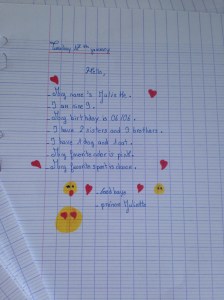 Hello,
- My name's Juliette.
- I am nine 9.
- My birthday is 06/06.
- I have 2 sisters and 3 brothers.
- I have 1 dog and 1 cat.
- My favorite color is pink.
- My favorite sport is dance.
- Good bye
- Juliette